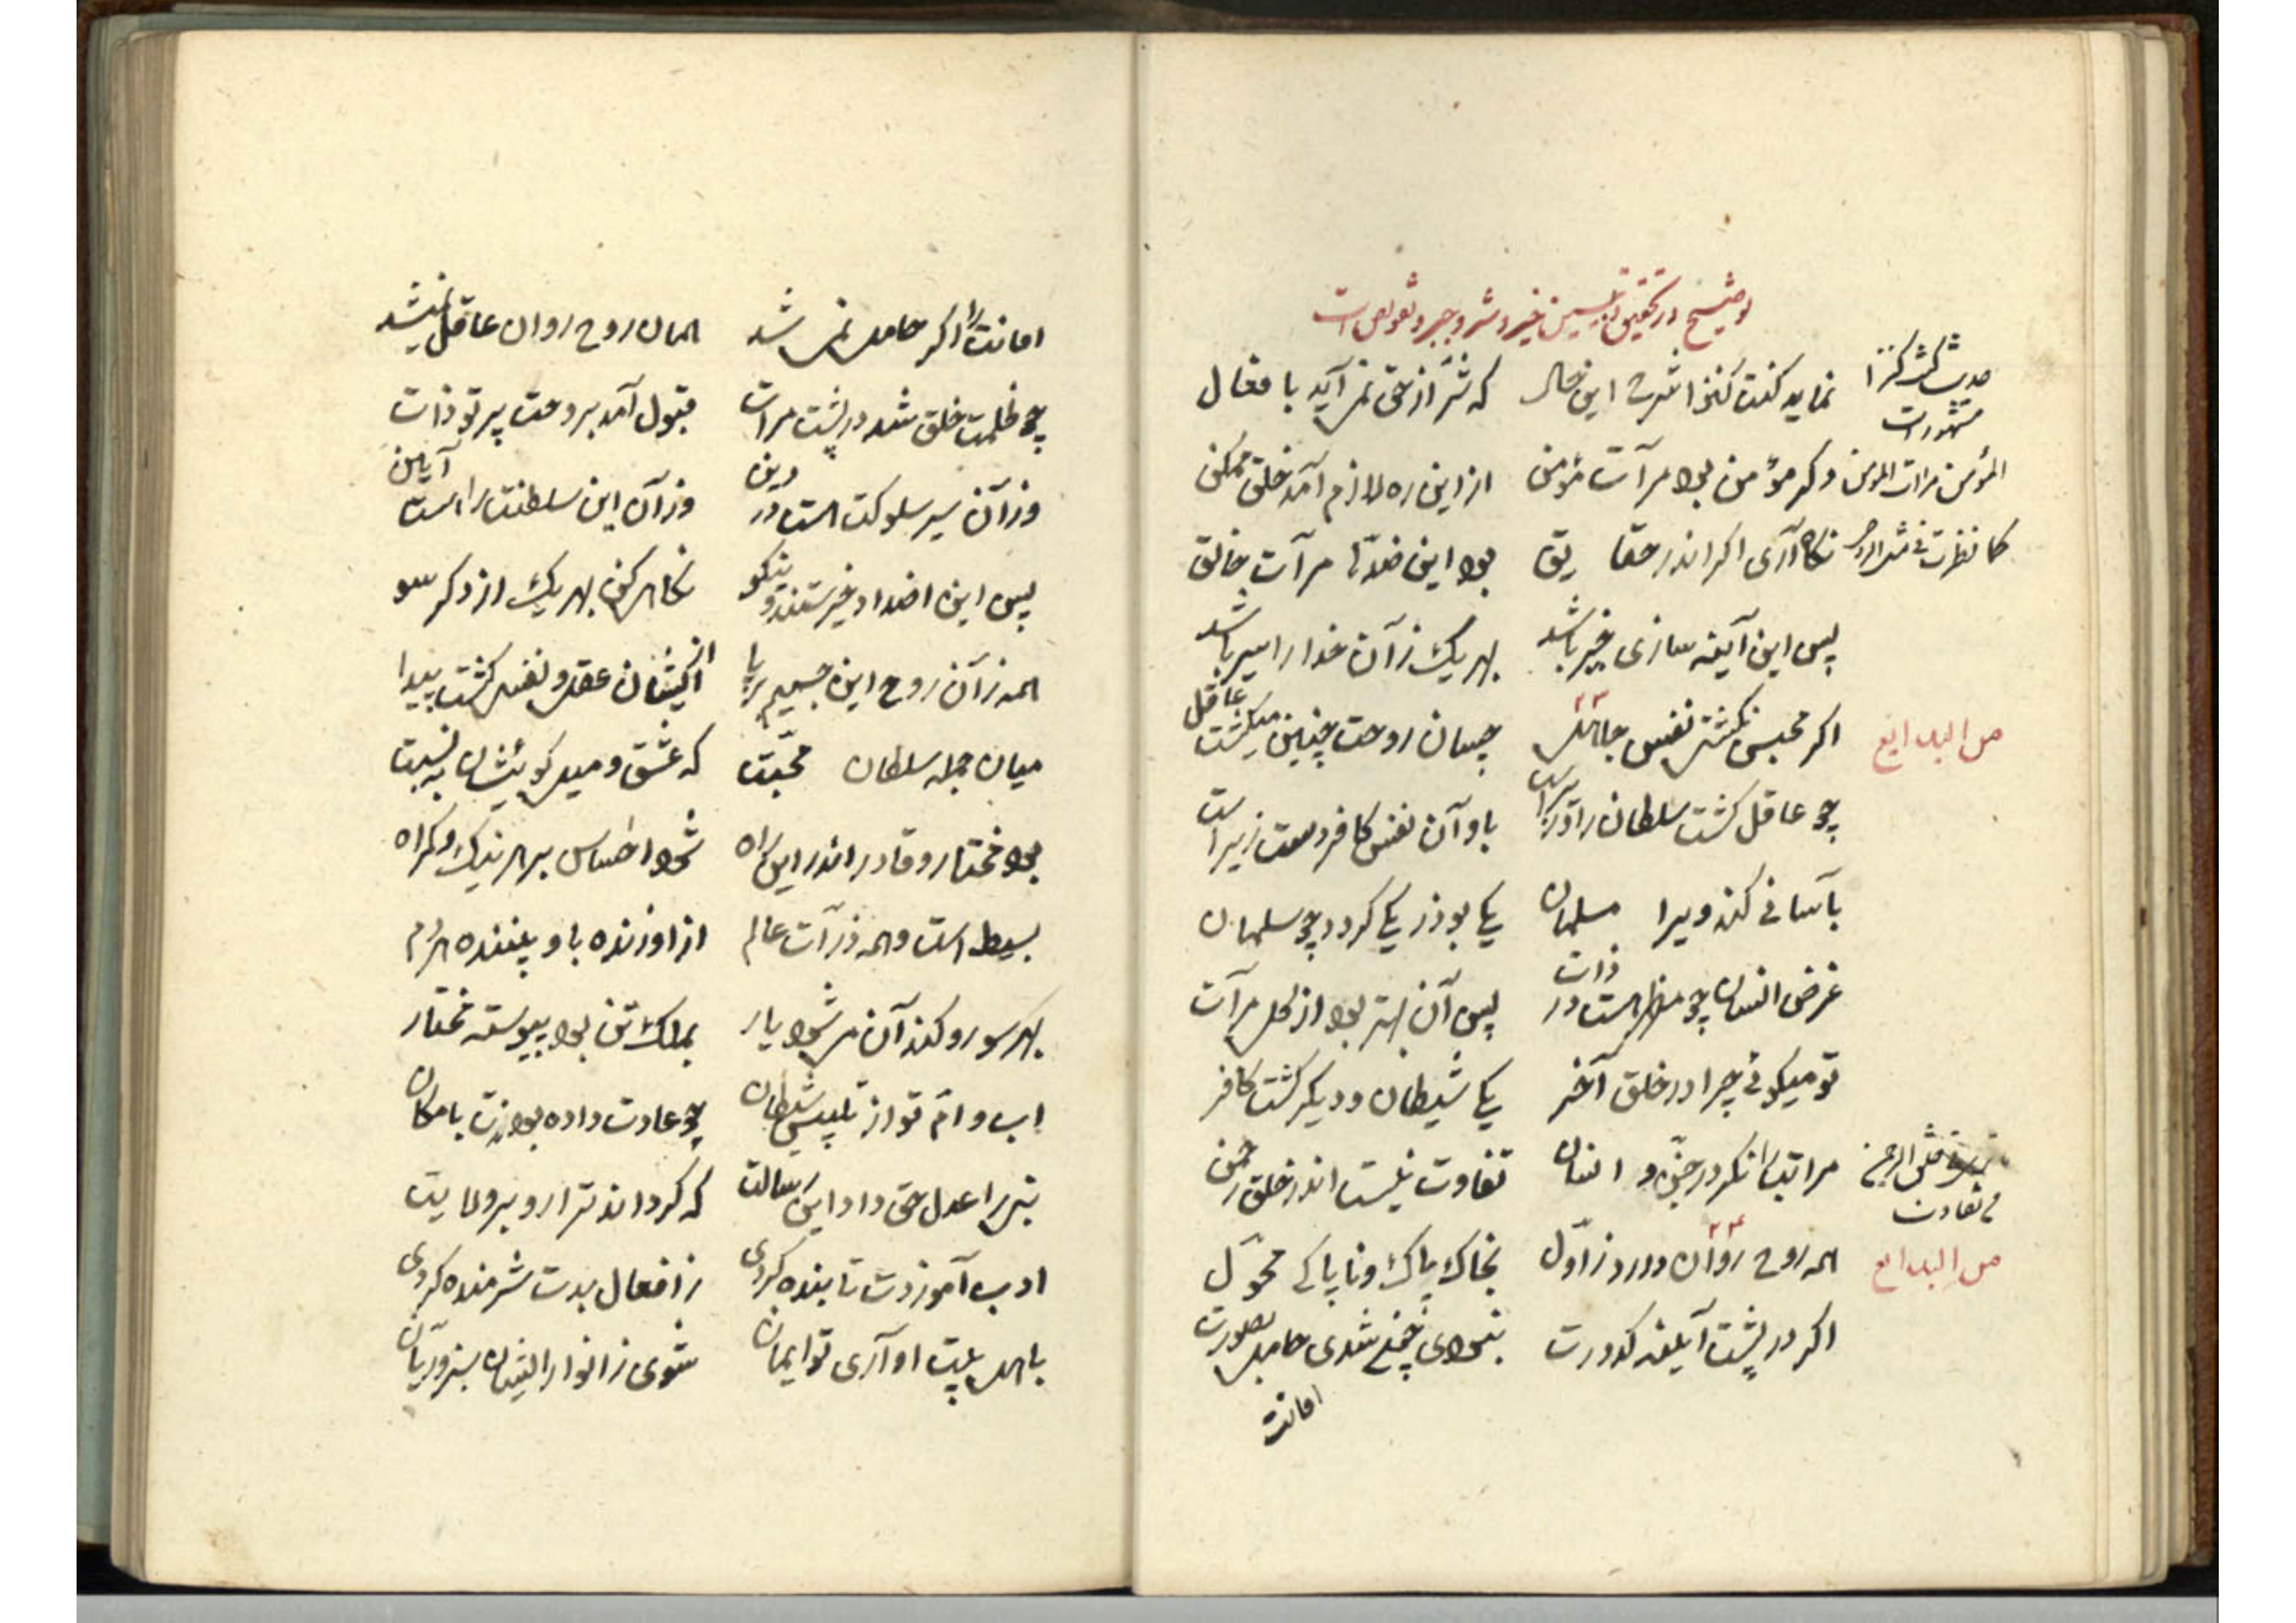 توضیح در تحقیق تلبیس خیر و شر و جبر و تفویض است
حدیث کنت کنزا
مشهور است
نماید کنت کنزا شرح این حال که شر از حق نمی آید بافعال
المؤمن مرآت المؤمن
وکر مؤمن بود مرآت مؤمن از این ره لازم آمد خلق ممکن
نکاه آری اکر اندر حقایق بود این ضدها مرآت خالق
پس این آینه سازی خیر باشد بهر یک زآن خدا را سیر باشد
من البدایع
اکر محبس نکشتی نفس جاهل چسان روحت چنین میکشت عاقل
چو عاقل کشت سلطان را وزیر است باو آن نفس کافر دست زیر است
بآسانی کند ویرا مسلمان یکی بوذر یکی کردد چو سلمان
غرض انسان چو مظهر است در ذات پس آن بهتر بود از کل مرآت
تو میکوئی چرا در خلق آخر یکی شیطان و دیکر کشت کافر
فی خلق الرحمن
من تفاوت
مراتب را نکر در جن و انسان تفاوت نیست اندر خلق رحمن
من البدایع
همه روح روان در روز اول بخاک پاک و ناپاکی محول
اکر در پشت آینه کدورت نبودی خود نمی شدی حامل بصورت
امانت
امانت را اکر حامل نمی شد همان روح روان عاقل نمیشد
چو ظلمت خلق شد در پشت مرآت قبول آمد بروحت پرتو ذات
وزآن سیر سلوکت است در دین وزآن این سلطنت را هست آیین
پس این اضداد خیرستند و نیکو نکاهی کن بهر یک از دکر سو
همه زآن روح این جسم برپا از ایشان عقل و نفس کشت پیدا
میان جمله سلطان محبت که عشق و میل کوئیشان به نسبت
بود مختار و قادر اندر این راه شود احساس بر هر نیک و کمراه
بسیط است و همه ذرات عالم از او زنده باو بیننده هر دم
بهر سو رو کند آن می شود یار بملک تن بود پیوسته مختار
اب و ام تو از تلبیس شیطان چو عادت داده بودندت بامکان
نبی را عدل حق داد این رسالت که کرداند ترا رو بر ولایت
ادب آموزدت تا بنده کردی ز افعال بدت شرمنده کردی
باهل بیت او آری تو ایمان شوی ز انوار ایشان